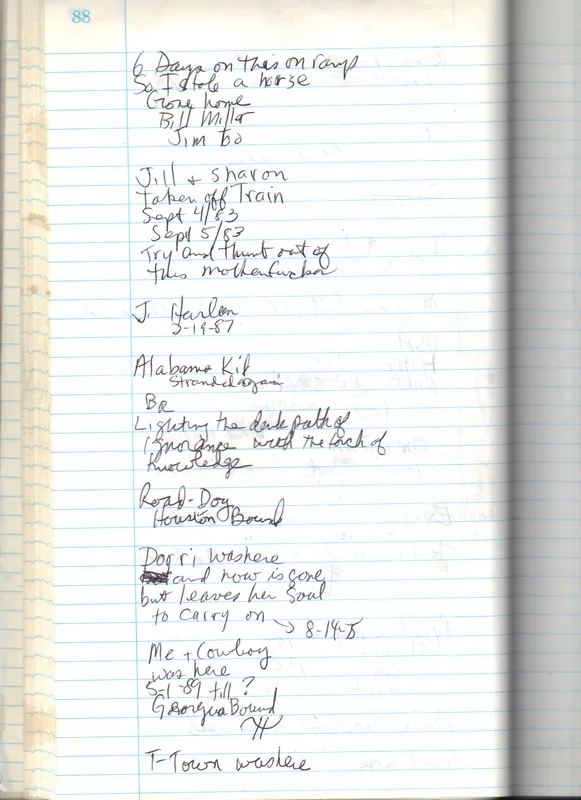 88
6 Days on this on ramp
So I stole a horse
Gone home
Bill Miller
Jim Bo
Jill + Sharon
taken off Train
Sept 4/83
Sept 5/83
Try and thumb out of
this motherfucker
J. Harlan
2-19-87
Alabama Kid
Stranded again
BR
Lighting the dark path of
ignorance with the torch of
knowledge
Road-Dog
Houston Bound
Dorri was here
and now is gone
but leaves her Soul
to carry on → 8-14-
Me + Cowboy
was here
5-1-89 till ?
Georgia Bound
T-Town was here